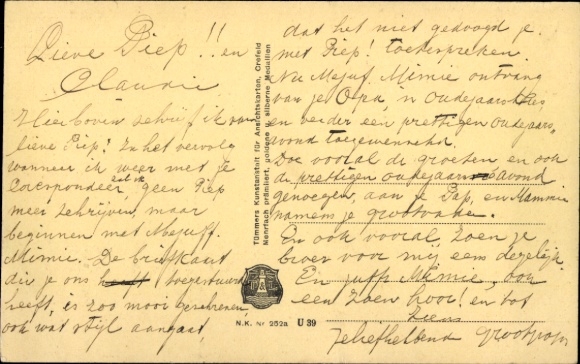 Lieve Piep!! en
Claudie
Hierboven schrijf ik nog
lieve Piep! In het vervolg
wanneer ik weer met je
Correspondeer, zal ik geen Piep
meer schrijven, maar
beginnen met Mejuff.
Mimie. De briefkaart
die je ons heeft toegestuurd
heeft, is zoo mooi geschreven,
ook wat stijl aangaat,
Tümmers Kunstanstalt für Ansichtskarten, Crefeld
Mehrfach prämiiert, goldene u. silberne Medaillen
N.K. Nr 252a U 39
dat het niet gedoogd je
met Piep! toetespreken.
Nu Mejuf. Mimie ontvang
van je Opa, 'n Oudejaars
en verder een prettigen oudejaars
avond toegewenscht.
Doe vooral de groeten en ook
de prettigen oudejaarsavond
genoegen, aan je Pap, en Mammie
namens je grootvader.
En ook vooral, zoen je
broer voor mij eens degelijk.
En juff. Mimie, ook
een zoen hoor! en tot
ziens
Jeliefhebbend Grootpapa